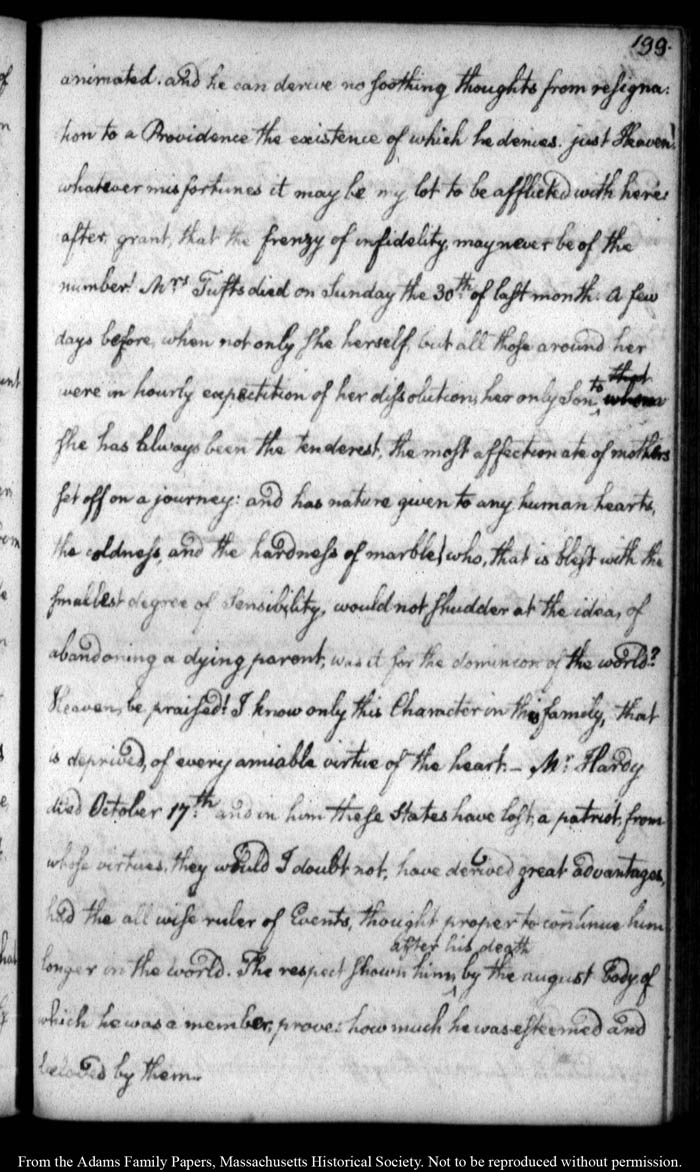 199.
animated. and he can derive no soothing thoughts from resigna:
tion to a Providence the existence of which he denies. just Heaven!
whatever misfortunes it may be my lot to be afflicted with here:
after, grant, that the frenzy of infidelity, may never be of the
number! Mrs Tufts died on Sunday the 30th. of last month: a few
days before, when not only she herself, but all those around her
were in hourly expectition of her dissolution, her only Son, to whom that
she has always been the tenderest, the most affectionate of mothers
set off on a journey: and has nature given to any human hearts,
the coldness, and the hardness of marble! who, that is blest with the
smallest degree of Sensibility, would not shudder at the idea, of
abandoning a dying parent, was it for the dominion of the world?
Heaven, be praised! I know only this Character in the family, that
is deprived, of every amiable virtue of the heart.— Mr. Hardy
died October 17.th and in him these States have lost, a patriot, from
whose virtues, they would I doubt not, have derived great advantages,
had the all wise ruler of Events, thought proper to continue him
longer in the world. The respect shown him, after his death by the august body, of
which he was a member, proves how much he was esteemed and
beloved by them.
From the Adams Family Papers, Massachusetts Historical Society. Not to be reproduced without permission.